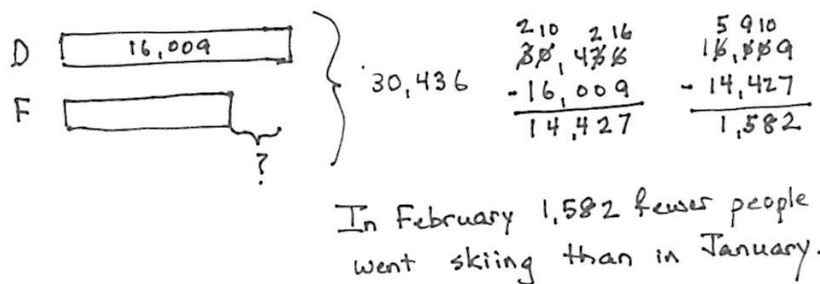 D 16,009
F
?
30,436
2 10 2 16
30,436
-16,009
14,427
5 9 10
16,009
-14,427
1,582
In February 1,582 fewer people
went skiing than in January.